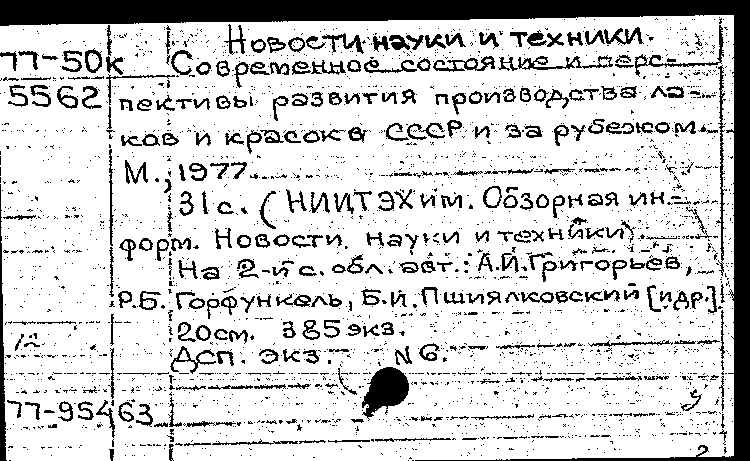 Новости науки и техники.
77-50к Современное состояние и перс-
5562 пективы развития производства ла-
ков и красок в СССР и за рубежом.
М., 1977.
31с. (НИИТЭХим. Обзорная ин-
форм. Новости науки и техники).
На 2-й с. обл. авт.: А.И.Григорьев,
Р.Б. Горфункель, Б.И. Пшиялковский [и др.]
20см. 385 экз.
12 ДСП. экз. N 6.
77-95463 У
2